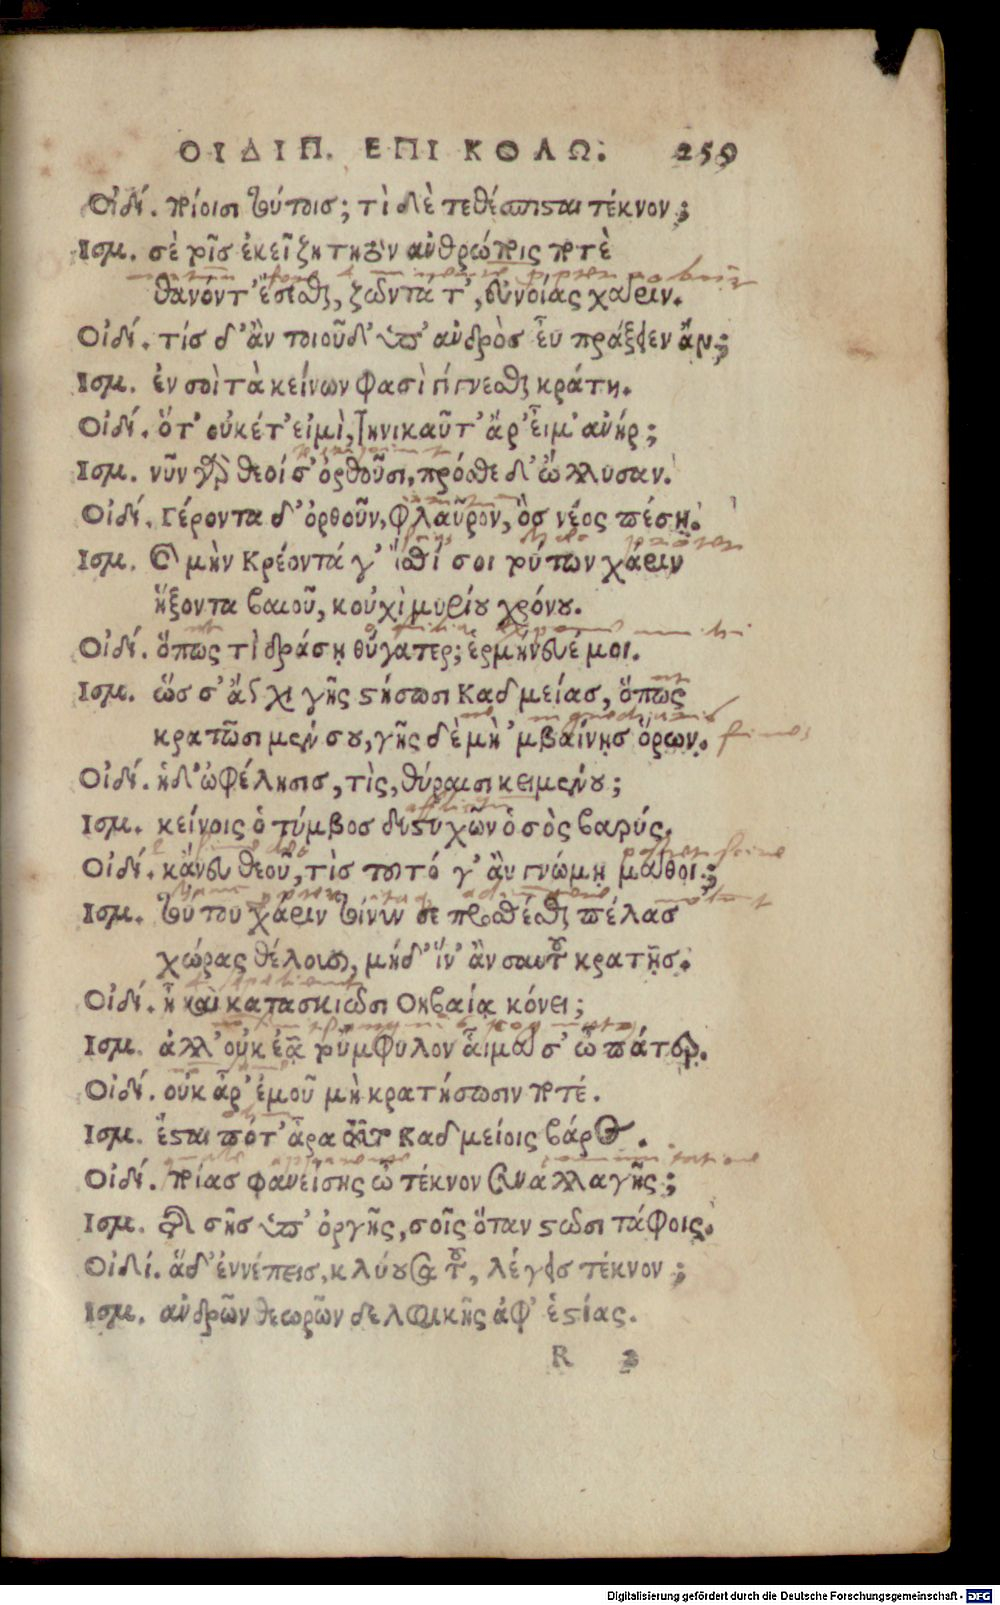 ΟΙΔΙΠ. ΕΠΙ ΚΟΛΩ. 259
Οἰδί. ποίοισι τούτοις; τί δὲ τεθέσπισται τέκνον;
Ισμ. σὲ τοῖς ἐκεῖ ζητητὸν ἀνθρώποις ποτὲ
θανόντ' ἔσεσθαι, ζῶντά τ', εὐνοίας χάριν.
Οἰδί. τίς δ' ἂν τοιοῦδ' ὑπ' ἀνδρὸς εὖ πράξειεν ἄν;
Ισμ. ἐν σοὶ τὰ κείνων φασὶ γίγνεσθαι κράτη.
Οἰδί. ὅτ' οὐκέτ' εἰμὶ, τηνικαῦτ' ἄρ' εἶμ' ἀνήρ;
Ισμ. νῦν γὰρ θεοί σ' ὀρθοῦσι, πρόσθε δ' ὤλλυσαν.
Οἰδί. γέροντα δ' ὀρθοῦν, φλαῦρον, ὃς νέος πέσῃ.
Ισμ. καὶ μὴν Κρέοντά γ' ἴσθί σοι τούτων χάριν
ἥξοντα βαιοῦ, κοὐχὶ μυρίου χρόνου.
Οἰδί. ὅπως τὶ δράσῃ θύγατερ; ἑρμήνευέ μοι.
Ισμ. ὥς σ' ἄγχι γῆς στήσωσι Καδμείας, ὅπως
κρατῶσι μέν σου, γῆς δὲ μὴ 'μβαίνῃς ὅρων.
Οἰδί. ἡ δ' ὠφέλησις, τὶς, θύραισι κειμένου;
Ισμ. κείνοις ὁ τύμβος δυστυχῶν ὁ σὸς βαρύς.
Οἰδί. κἄνευ θεοῦ, τὶς τοῦτό γ' ἂν γνώμῃ μάθοι;
Ισμ. τούτου χάριν τοίνυν σε προσθέσθαι πέλας
χώρας θέλουσι, μήδ' ἵν' ἂν σαυτοῦ κρατῇς.
Οἰδί. ἦ καὶ κατασκιῶσι Θηβαίᾳ κόνει;
Ισμ. ἀλλ' οὐκ ἐᾷ τοὔμφυλον αἷμά σ' ὦ πάτερ.
Οἰδί. οὐκ ἄρ' ἐμοῦ μὴ κρατήσωσιν ποτέ.
Ισμ. ἔσται ποτ' ἄρα τοῦτο Καδμείοις βάρος.
Οἰδί. ποίας φανείσης ὦ τέκνον συναλλαγῆς;
Ισμ. τῆς σῆς ὑπ' ὀργῆς, σοῖς ὅταν στῶσι τάφοις.
Οἰδί. ἅδ' ἐννέπεις, κλύουσα τοῦ, λέγεις τέκνον;
Ισμ. ἀνδρῶν θεωρῶν δελφικῆς ἀφ' ἑστίας.
R 2
Digitalisierung gefördert durch die Deutsche Forschungsgemeinschaft - DFG